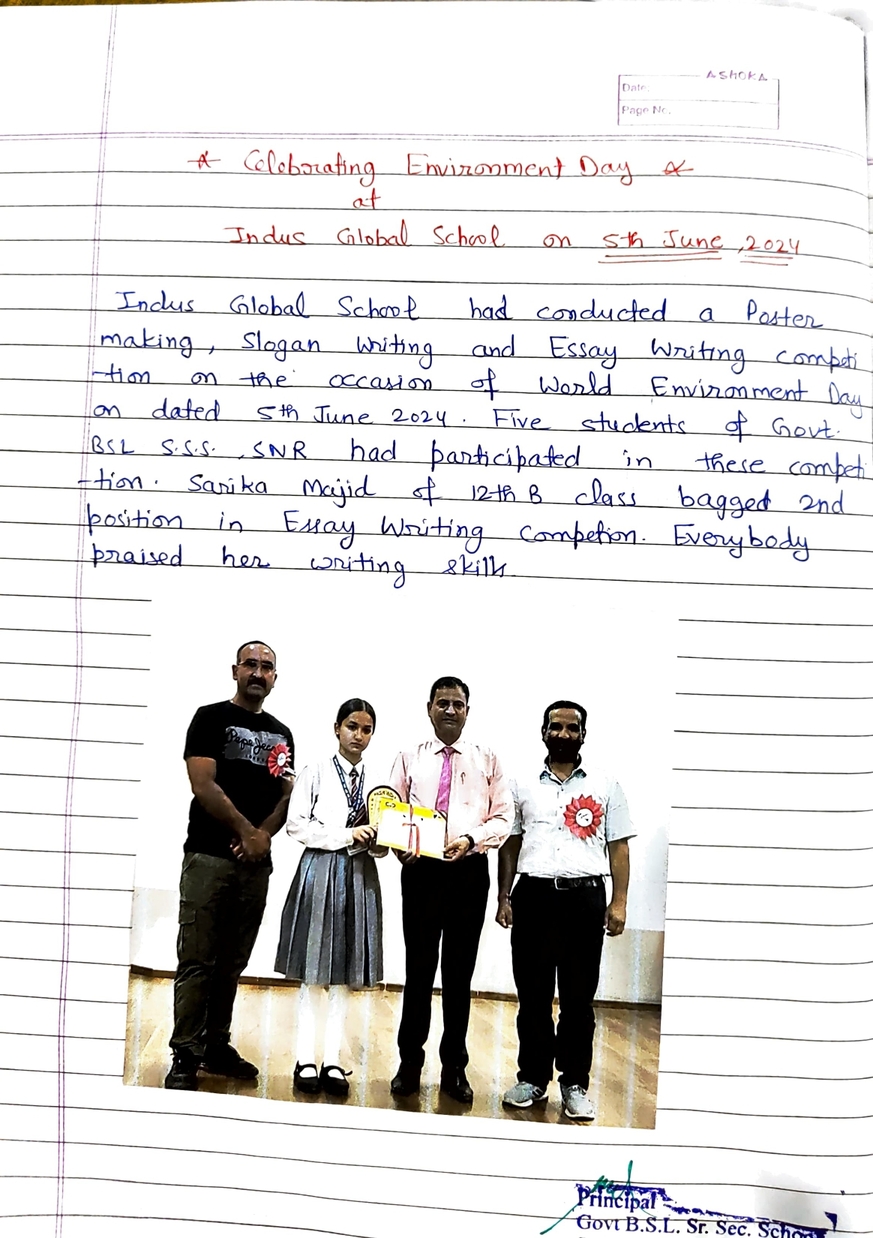 ASHOKA
Date:
Page No.
Celebrating Environment Day
at
Indus Global School on 5th June, 2024
Indus Global School had conducted a Poster
making, Slogan Writing and Essay Writing competi
-tion on the occasion of World Environment Day
on dated 5th June 2024. Five students of Govt.
BSL S.S.S., SNR had participated in these competi
-tion. Sarika Majid of 12th B class bagged 2nd
position in Essay Writing Competion. Everybody
praised her writing skills
Pepe Jeans
Principal
Govt B.S.L. Sr. Sec. School